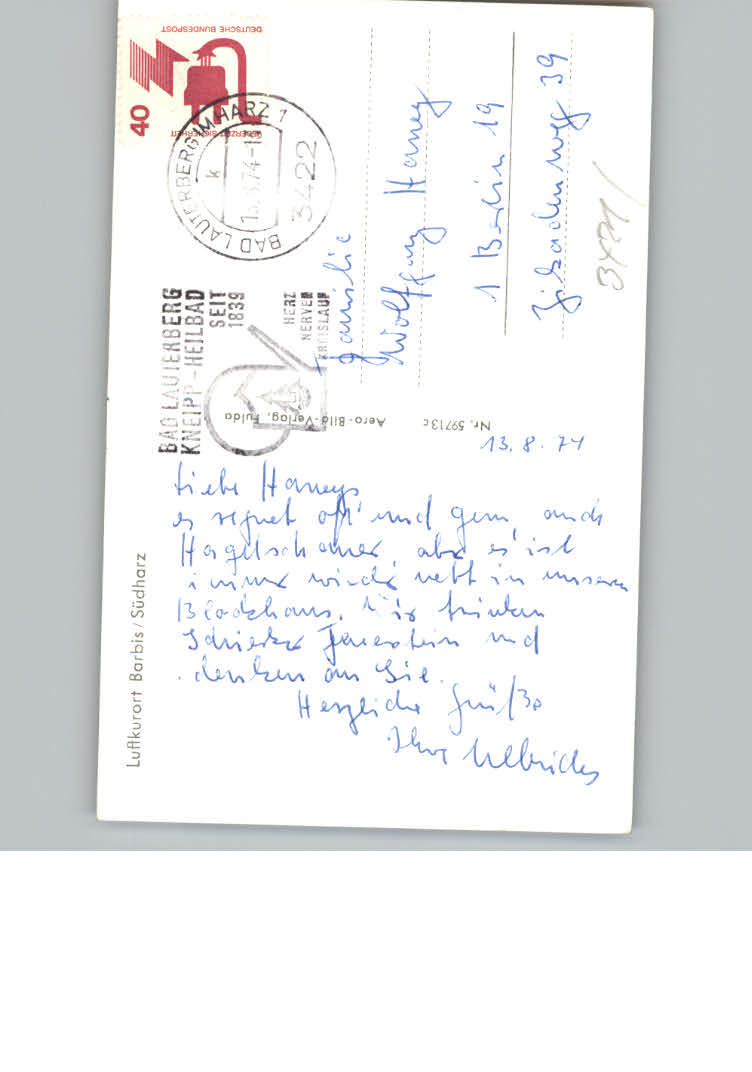 13. 8. 74
Liebe Haneys
es regnet oft und gern, auch
Hagelschauer, aber es ist
immer wieder nett in unserem
Blockhaus. Wir trinken
Schierker Feuerstein und
denken an Sie.
Herzliche Grüße
Ihre Ulbrichs
Familie
Wolfgang Haney
1 Berlin 19
39
Luftkurort Barbis / Südharz
Aero-Bild-Verlag, Fulda
Nr. 59713c
BAD LAUTERBERG
KNEIPP-HEILBAD
SEIT
1839
HERZ
NERVEN
KREISLAUF
BAD LAUTERBERG IM HARZ 1
k
3422
DEUTSCHE BUNDESPOST
JEDERZEIT SICHERHEIT
40